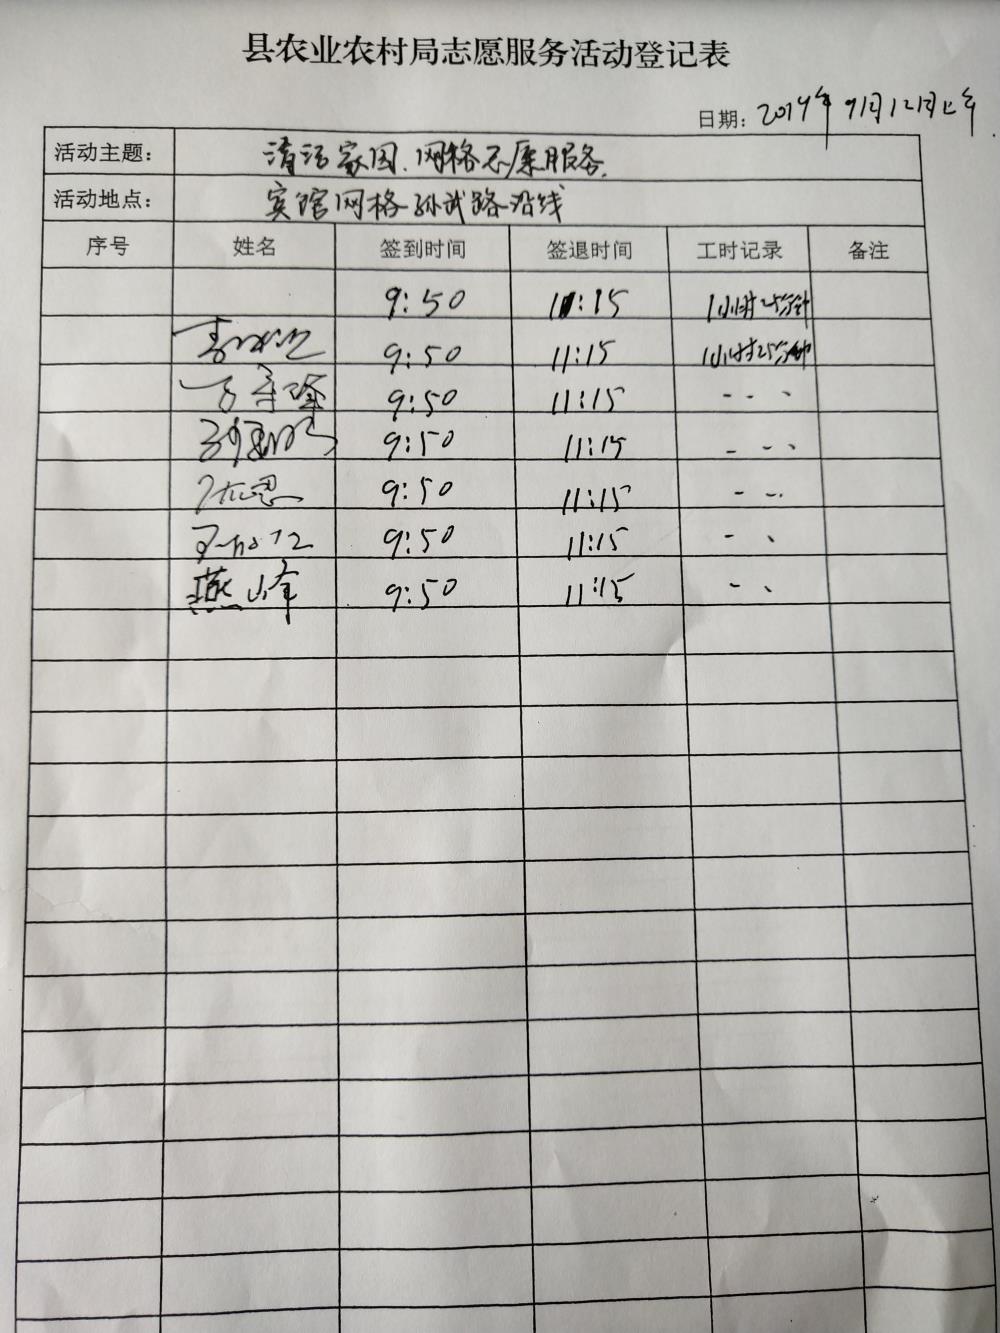 县农业农村局志愿服务活动登记表
日期: 2019年9月12日上午
活动主题: 清洁家园、网格志愿服务.
活动地点: 宾馆网格孙武路沿线
序号 姓名 签到时间 签退时间 工时记录 备注
9:50 11:15 1小时25分钟
9:50 11:15 1小时25分钟
9:50 11:15
9:50 11:15
9:50 11:15
9:50 11:15
燕山峰 9:50 11:15